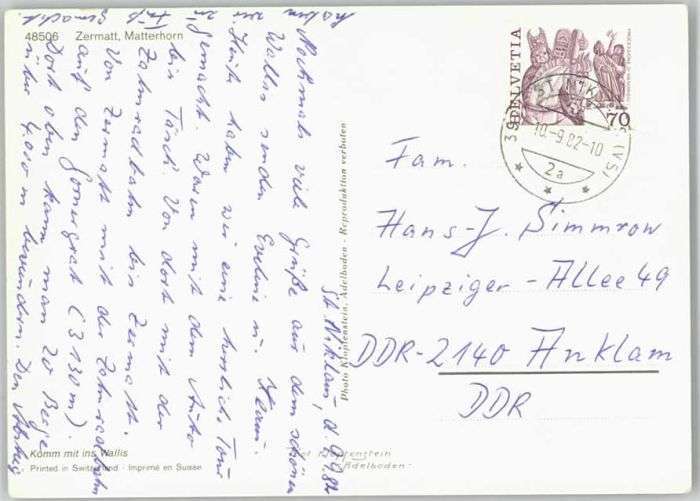 48506 Zermatt, Matterhorn
St. Niklaus, d. 9.9.82
Nochmals viele Grüße aus dem schönen
Wallis senden Eveline u.
Heute haben wir eine herrliche Tour
gemacht. Waren mit dem Auto
bis Täsch. Von dort mit der
Zahnradbahn bis Zermatt.
Von Zermatt mit der Zahnradbahn
auf den Gornergrat (3130 m).
Dort oben kann man 20 Berge
über 4000 m bewundern. Den Abstieg
haben wir
zu Fuß
gemacht.
Komm mit ins Wallis
Printed in Switzerland - Imprimé en Suisse
Photo Klopfenstein, Adelboden - Reproduktion verboten
Klopfenstein
Adelboden
HELVETIA
70
39 ST. NIKLAUS (VS)
10.-9.82-10
2a
Fam.
Hans-J. Simmrow
Leipziger-Allee 49
DDR-2140 Anklam
DDR